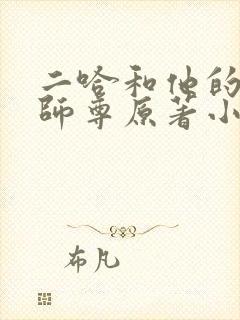 二哈和他的
師尊原著小
布凡